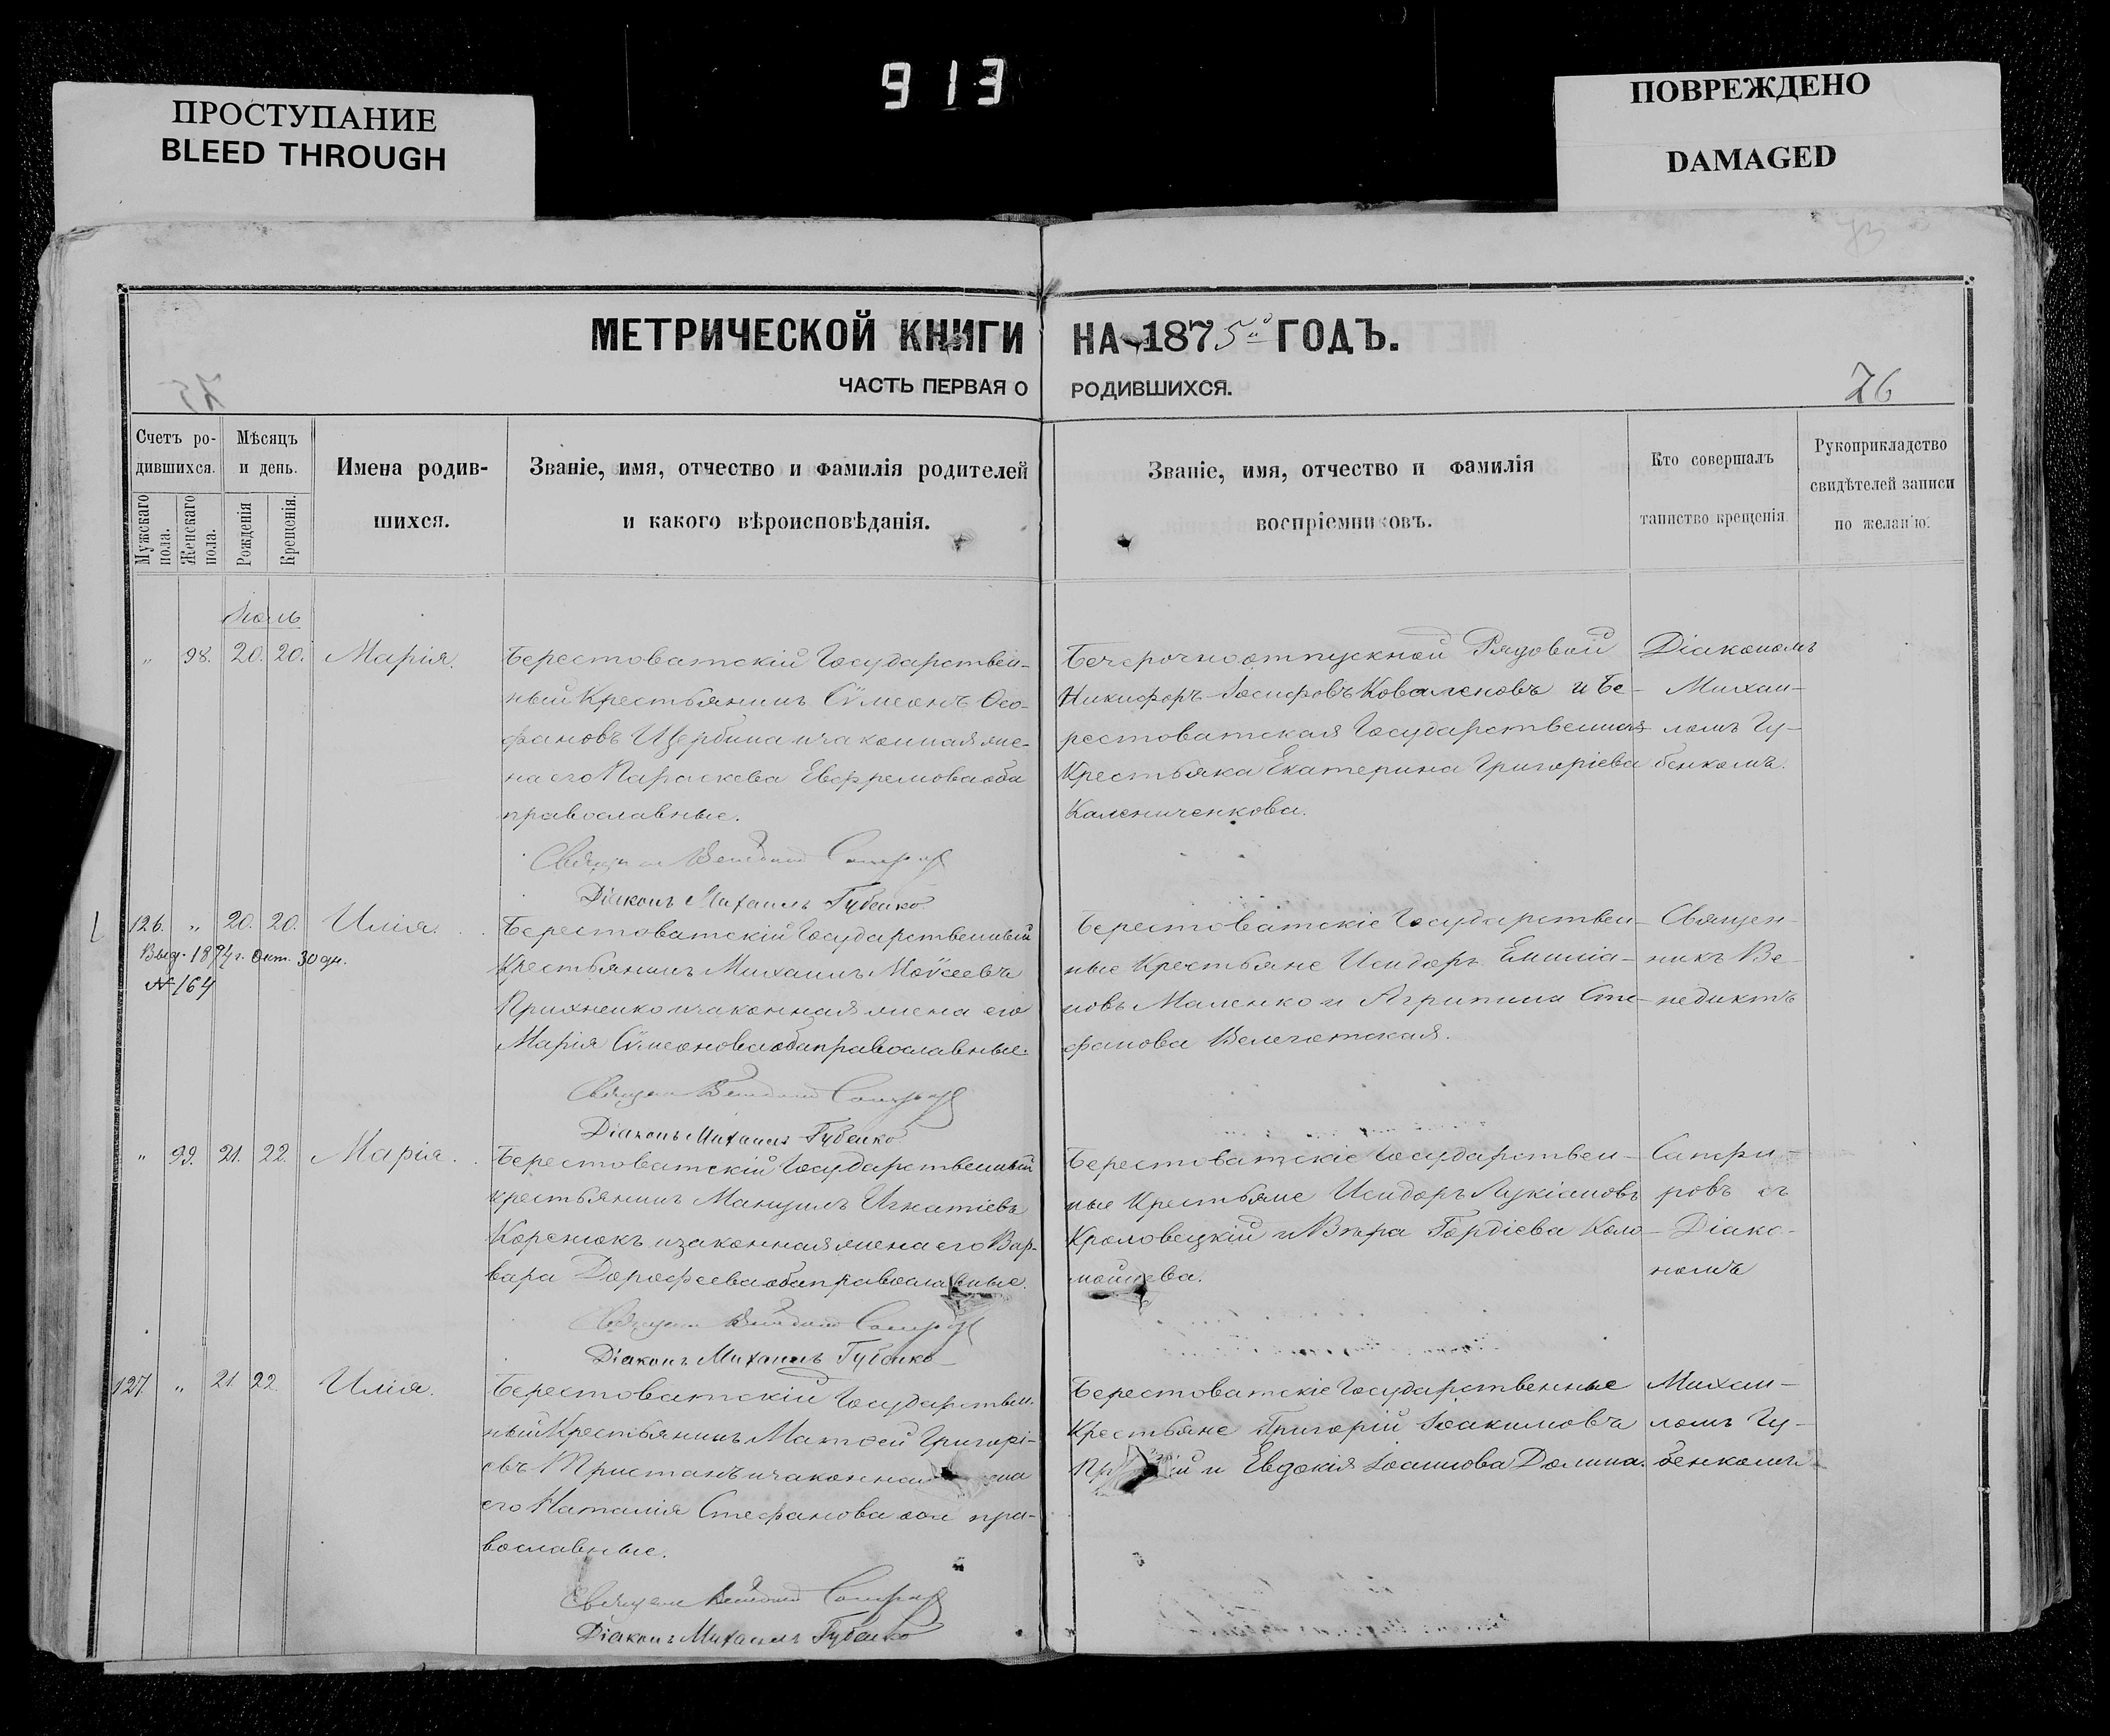 913
ПРОСТУПАНИЕ
BLEED THROUGH
ПОВРЕЖДЕНО
DAMAGED
МЕТРИЧЕСКОЙ КНИГИ НА 1875й ГОДЪ.
ЧАСТЬ ПЕРВАЯ О РОДИВШИХСЯ.
76
Счетъ ро-
дившихся.
Мужскаго пола.
Женскаго пола.
Мѣсяцъ
и день.
Рожденія
Крещенія.
Имена родив-
шихся.
Званіе, имя, отчество и фамилія родителей
и какого вѣроисповѣданія.
Званіе, имя, отчество и фамилія
воспріемниковъ.
Кто совершалъ
таинство крещенія
Рукоприкладство
свидѣтелей записи
по желанію.
Іюль
„ 98. 20. 20. Марія.
Берестоватскій Государствен-
ный Крестьянинъ Сѵмеонъ Ѳео-
фановъ Щербина и законная же-
на его Параскева Евфремова оба
православные.
Діаконъ Михаилъ Губенко
Безсрочноотпускной Рядовой
Никифоръ Іосифовъ Коваленовъ и Бе-
рестоватская Государственная
Крестьянка Екатерина Григоріева
Калениченкова.
Діакономъ
Михаи-
ломъ Гу-
бенкомъ.
126. „ 20. 20. Илія.
Выд. 1894 г. Окт. 30 дн.
№ 164
Берестоватскій Государственный
Крестьянинъ Михаилъ Моѵсеевъ
Прихненко и законная жена его
Марія Сѵмеонова оба православные.
Діаконъ Михаилъ Губенко
Берестоватскіе Государствен-
ные Крестьяне Исидоръ Емилiа-
новъ Маленко и Агрипина Сте-
фанова Велегетская.
Священ-
никъ Ве-
недиктъ
„ 99. 21. 22. Марія.
Берестоватскій Государственный
крестьянинъ Мануилъ Игнатіевъ
Коренюкъ и законная жена его Вар-
вара Дорофеева оба православные.
Діаконъ Михаилъ Губенко
Берестоватскіе Государствен-
ные Крестьяне Исидоръ Лукіановъ
Кроловецкій и Вѣра Гордіева Коло-
мойцева.
Сапфи-
ровъ съ
Діако-
номъ
127. „ 21. 22. Илія.
Берестоватскій Государствен-
ный Крестьянинъ Матѳей Григорі-
евъ Тристанъ и законная
его Наталія Стефанова оба пра-
вославные.
Діаконъ Михаилъ Губенко
Берестоватскіе Государственные
Крестьяне Григорій Іоакимовъ
и Евдокія Іоаннова Долина.
Михаи-
ломъ Гу-
бенкомъ